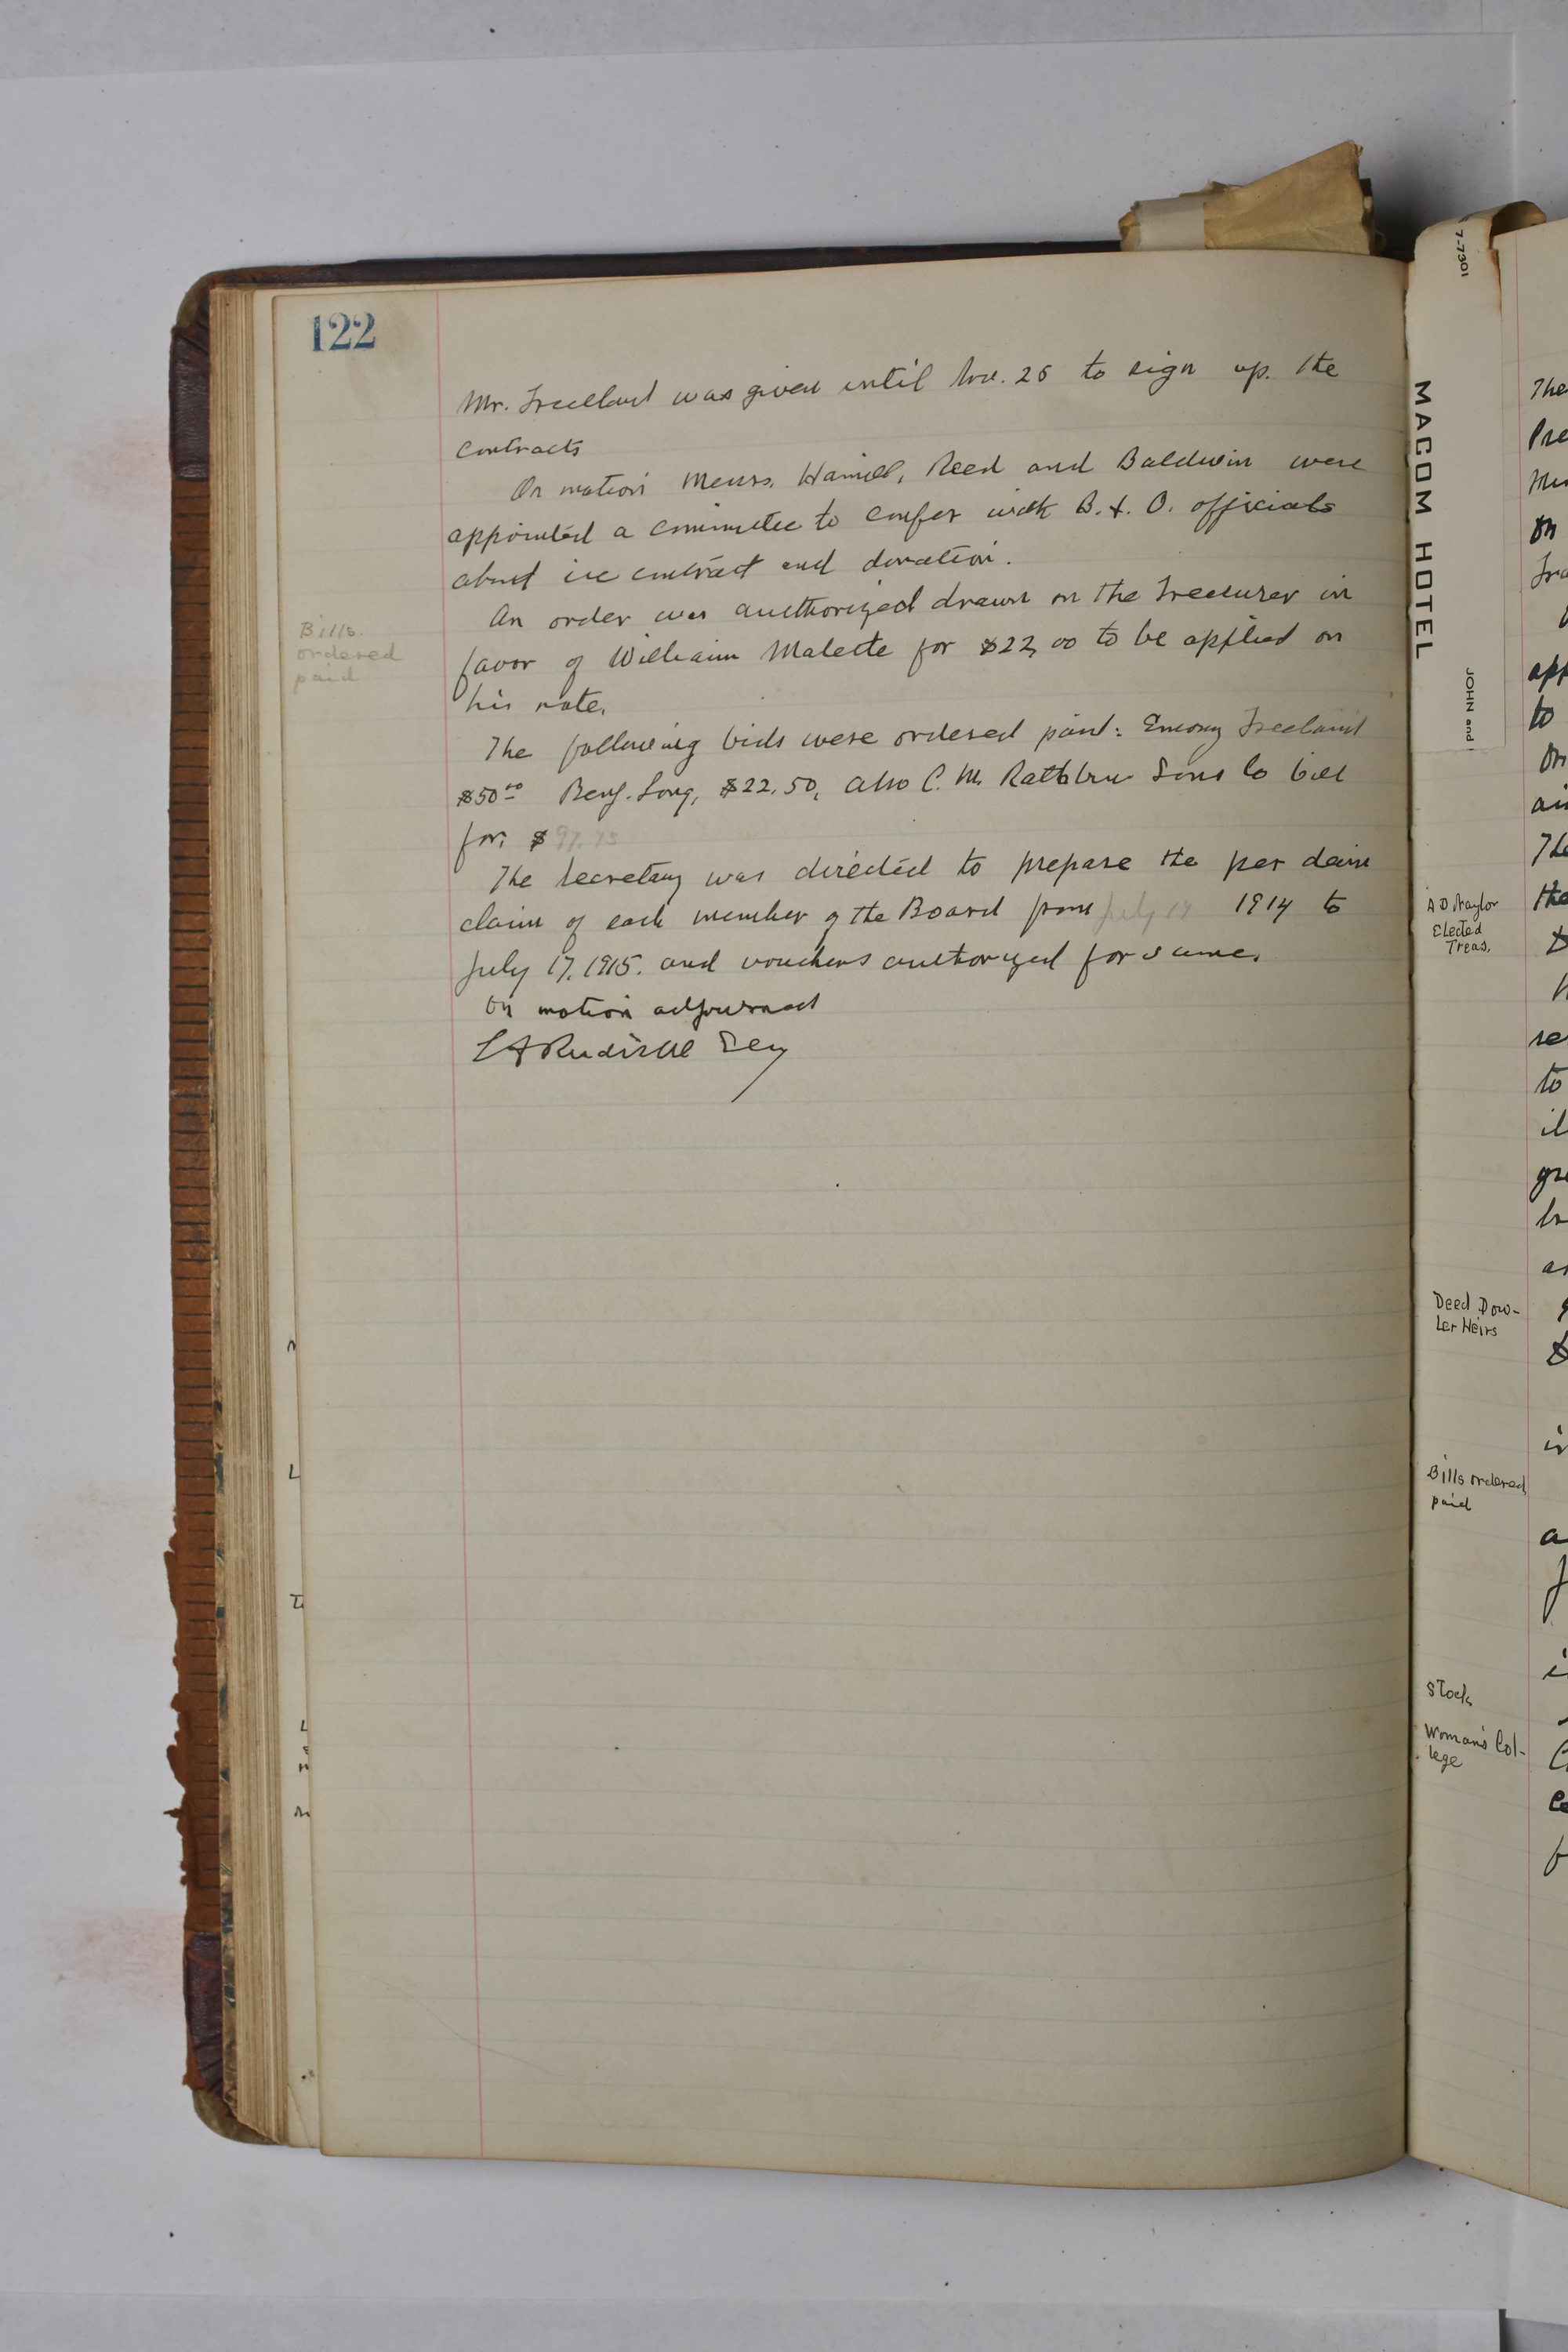 122
Mr. Freeland was given until Nov. 25 to sign up. the
contracts
On motion Messrs. Hamill, Reed and Baldwin were
appointed a committee to confer with B. & O. officials
about ice contract and donation.
Bills.
ordered
paid
An order was authorized drawn on the Treasurer in
favor of William Maleete for $22,00 to be applied on
his note.
The following bills were ordered paid: Emory Freeland
$50.00 Benj. Long, $22.50, also C. M. Rathbun Sons Co bill
for: $ 97.75
The Secretary was directed to prepare the per deim
claim of each member of the Board from July 17 1914 to
July 17, 1915. and vouchers authorized for same.
On motion adjourned
Rudisill Secy
7-7301
MAGOM HOTEL
JOHN and
A D Naylor
Elected
Treas,
Deed Dow-
ler Heirs
Bills ordered
paid
Stock
Woman's Col-
lege
The
Pre
on
app
to
on
The
the
se
to